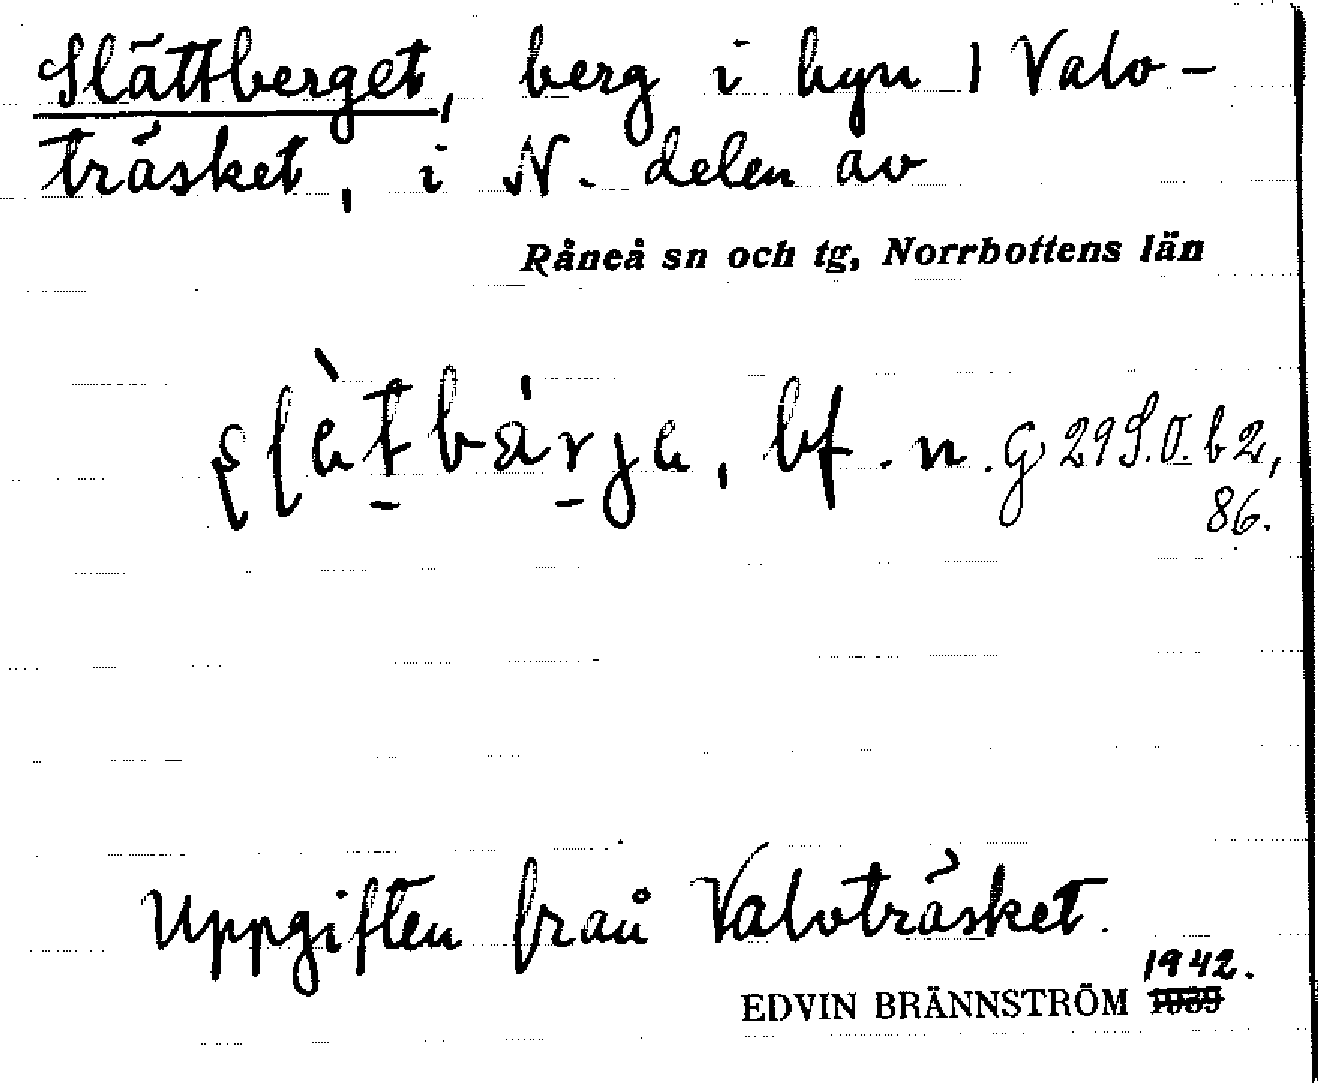 Slättberget, berg i byn 1 Valo-
träsket, i N. delen av
Råneå sn och tg, Norrbottens län
bf. n. G 29 S.O. b 2,
86.
Uppgiften från Valvträsket.
1942.
EDVIN BRÄNNSTRÖM 1939